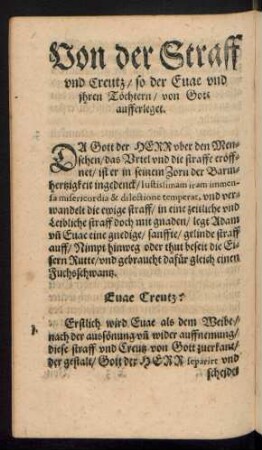 Von der Straff
vnd Creutz / so der Euae vnd
jhren Töchtern / von Gott
aufferleget.
DA Gott der HERR vber den Men-
schen / das Vrtel vnd die straffe eröff-
net / ist er in seinem Zorn der Barm-
hertzigkeit ingedenck / Iustissimam iram immen-
sa misericordia & dilectione temperat, vnd ver-
wandelt die ewige straff / in eine zeitliche vnd
Leibliche straff doch mit gnaden / legt Adam
vñ Euae eine gnedige / sanffte / gelinde straff
auff / Nimpt hinweg oder thut beseit die Ei-
sern Rutte / vnd gebraucht dafür gleich einen
Fuchsschwantz.
Euae Creutz:
1.
Erstlich wird Euae als dem Weibe /
nach der aussönung vñ wider auffnemung /
diese straff vnd Creutz von Gott zuerkant /
der gestalt / Gott der HERR separirt vnd
scheidet